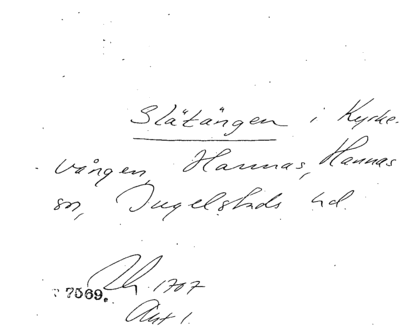 Slätängen i Kyrke-
vången, Hannas, Hannas
sn, Ingelstads hd.
Lh. 1707
7569.
Akt 1.